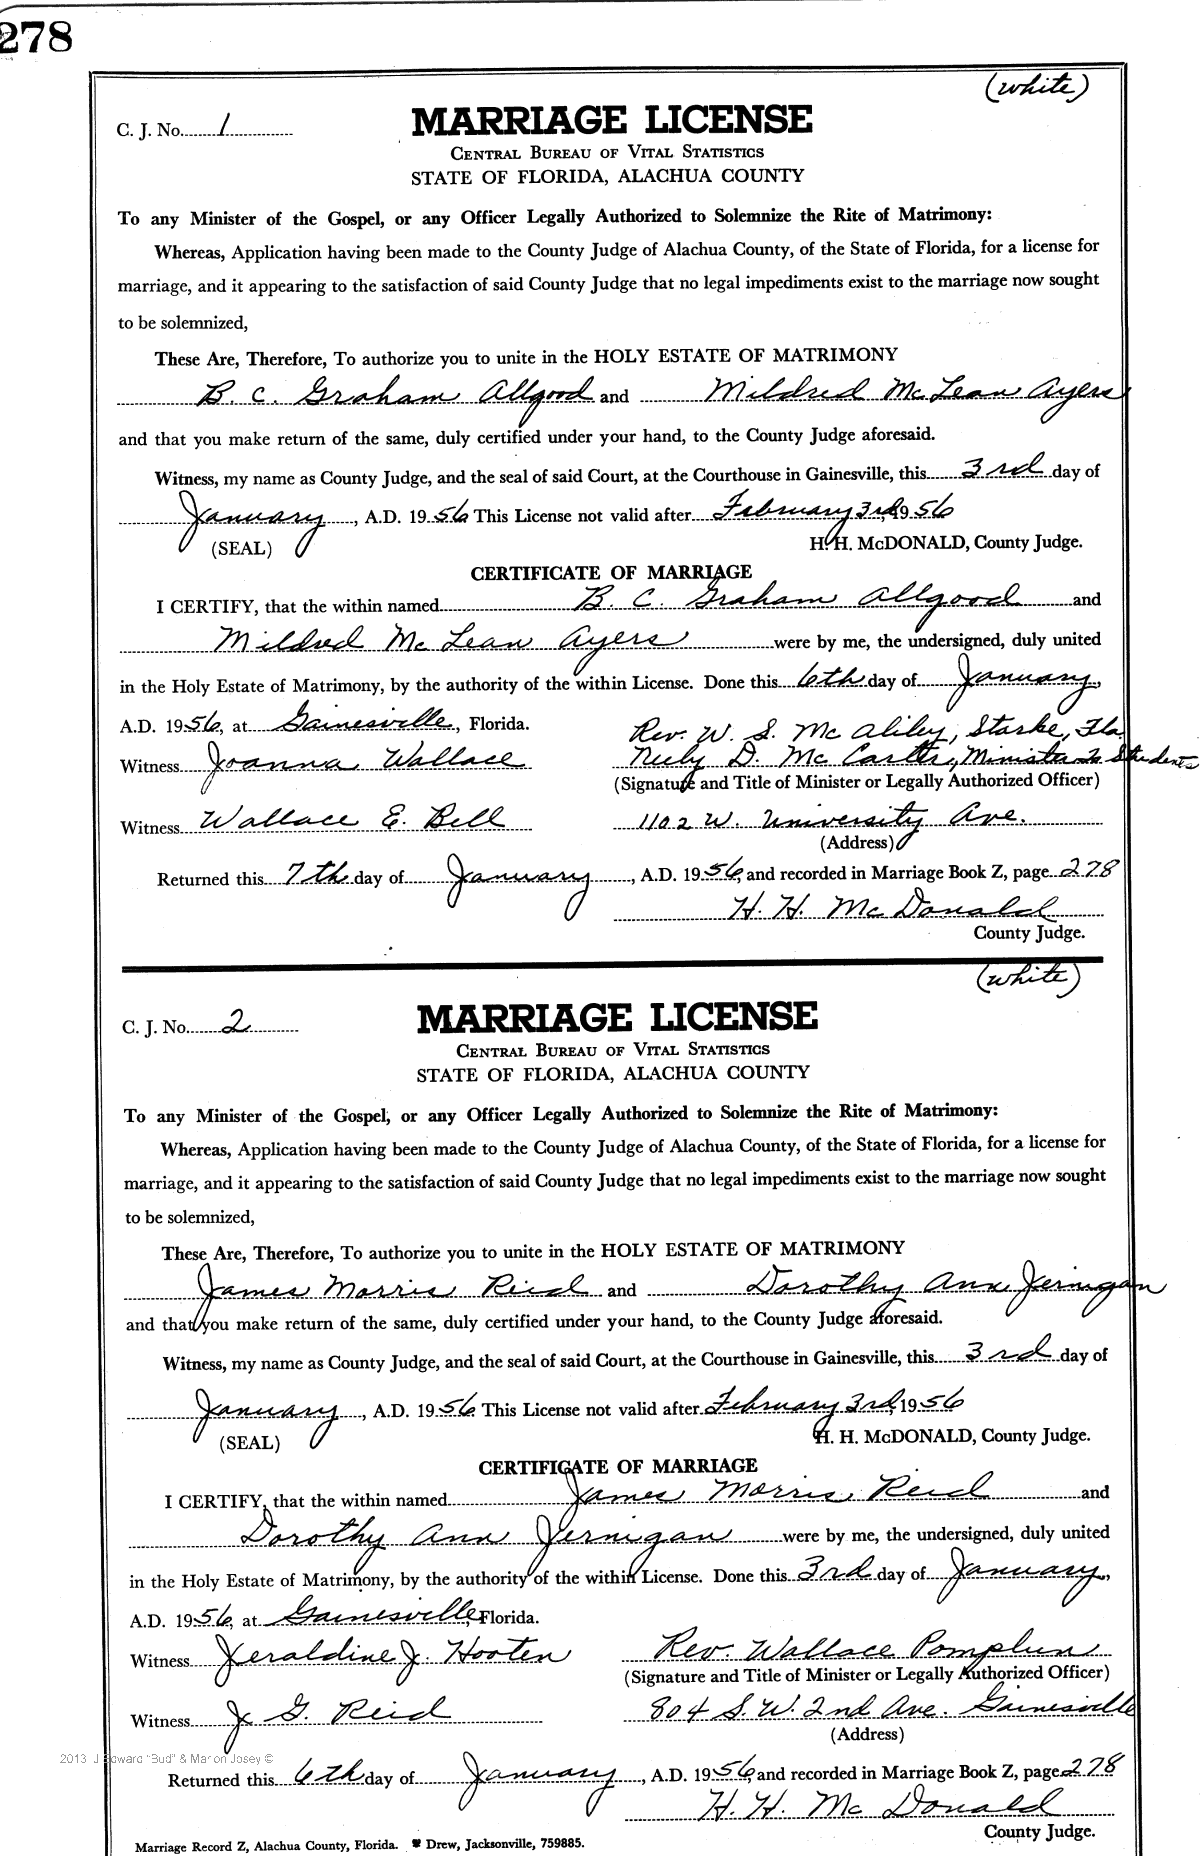 278
(white)
C. J. No. 1
MARRIAGE LICENSE
CENTRAL BUREAU OF VITAL STATISTICS
STATE OF FLORIDA, ALACHUA COUNTY
To any Minister of the Gospel, or any Officer Legally Authorized to Solemnize the Rite of Matrimony:
Whereas, Application having been made to the County Judge of Alachua County, of the State of Florida, for a license for
marriage, and it appearing to the satisfaction of said County Judge that no legal impediments exist to the marriage now sought
to be solemnized,
These Are, Therefore, To authorize you to unite in the HOLY ESTATE OF MATRIMONY
B. C. Graham Allgood and Mildred McLean Ayers
and that you make return of the same, duly certified under your hand, to the County Judge aforesaid.
Witness, my name as County Judge, and the seal of said Court, at the Courthouse in Gainesville, this 3rd day of
January, A.D. 1956 This License not valid after February 3rd, 1956
(SEAL) H. H. McDONALD, County Judge.
CERTIFICATE OF MARRIAGE
I CERTIFY, that the within named B. C. Graham Allgood and
Mildred McLean Ayers were by me, the undersigned, duly united
in the Holy Estate of Matrimony, by the authority of the within License. Done this 6th day of January,
A.D. 1956, at Gainesville, Florida. Rev. W. S. McAliley, Starke, Fla.
Witness Joanna Wallace Neely D. McCarter, Minister to Students
(Signature and Title of Minister or Legally Authorized Officer)
Witness Wallace E. Bell 1102 W. University Ave.
(Address)
Returned this 7th day of January, A.D. 1956, and recorded in Marriage Book Z, page 278
H. H. McDonald
County Judge.
(white)
C. J. No. 2
MARRIAGE LICENSE
CENTRAL BUREAU OF VITAL STATISTICS
STATE OF FLORIDA, ALACHUA COUNTY
To any Minister of the Gospel, or any Officer Legally Authorized to Solemnize the Rite of Matrimony:
Whereas, Application having been made to the County Judge of Alachua County, of the State of Florida, for a license for
marriage, and it appearing to the satisfaction of said County Judge that no legal impediments exist to the marriage now sought
to be solemnized,
These Are, Therefore, To authorize you to unite in the HOLY ESTATE OF MATRIMONY
James Morris Reid and Dorothy Ann Jernigan
and that you make return of the same, duly certified under your hand, to the County Judge aforesaid.
Witness, my name as County Judge, and the seal of said Court, at the Courthouse in Gainesville, this 3rd day of
January, A.D. 1956 This License not valid after February 3rd, 1956
(SEAL) H. H. McDONALD, County Judge.
CERTIFICATE OF MARRIAGE
I CERTIFY, that the within named James Morris Reid and
Dorothy Ann Jernigan were by me, the undersigned, duly united
in the Holy Estate of Matrimony, by the authority of the within License. Done this 3rd day of January,
A.D. 1956, at Gainesville, Florida.
Witness Jeraldine J. Hooten Rev. Wallace Pomplun
(Signature and Title of Minister or Legally Authorized Officer)
Witness J. G. Reid 804 S.W. 2nd Ave. Gainesville
(Address)
2013 J Edward "Bud" & Marion Josey ©
Returned this 6th day of January, A.D. 1956, and recorded in Marriage Book Z, page 278
H. H. McDonald
County Judge.
Marriage Record Z, Alachua County, Florida. Drew, Jacksonville, 759885.